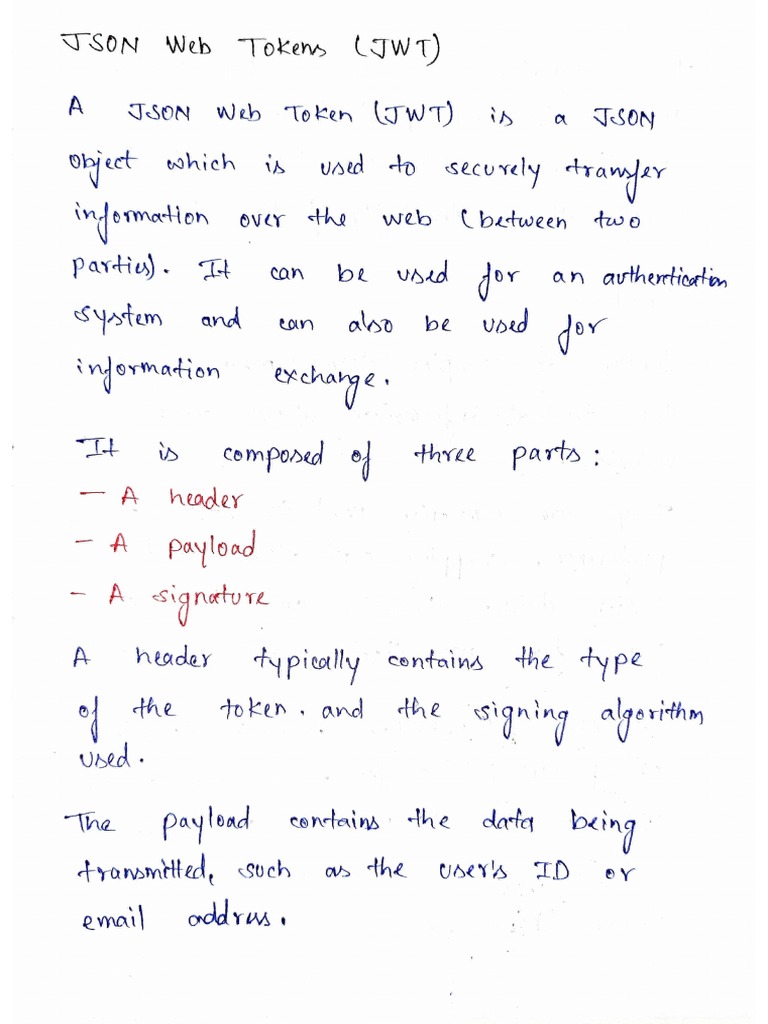 JSON Web Tokens (JWT)
A JSON Web Token (JWT) is a JSON
object which is used to securely transfer
information over the web (between two
parties). It can be used for an authentication
system and can also be used for
information exchange.
It is composed of three parts:
- A header
- A payload
- A signature
A header typically contains the type
of the token. and the signing algorithm
used.
The payload contains the data being
transmitted, such as the user's ID or
email address.